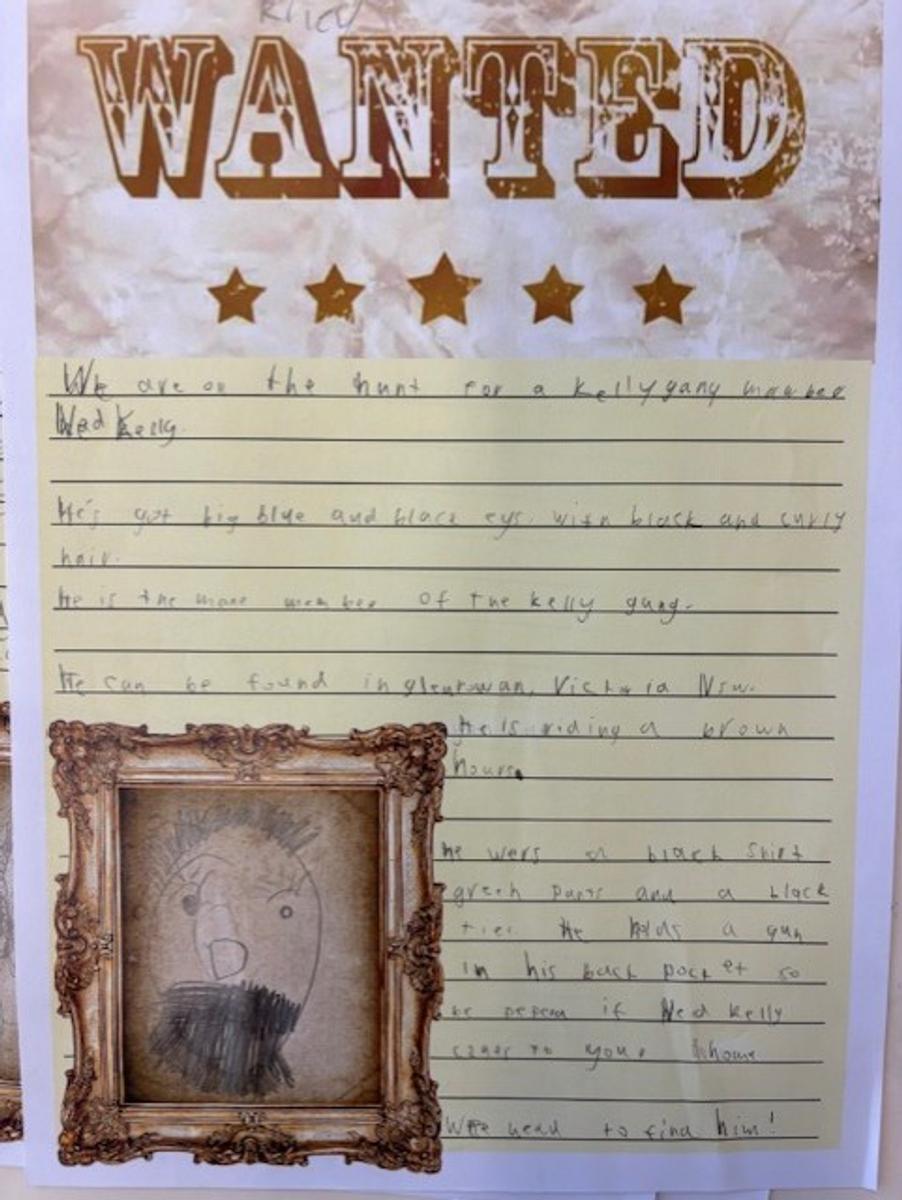 WANTED
We are on the hunt for a kelly gang member
Ned Kelly.
He's got big blue and black eys. with black and curly
hair.
He is the mane member of the kelly gang.
He can be found in glenrowan, Victoria Nsw.
He is riding a brown
hours.
he wers a black Shirt
green pants and a black
tier. He holds a gun
in his back pocket so
be if Ned Kelly
comes to your home
We need to find him!